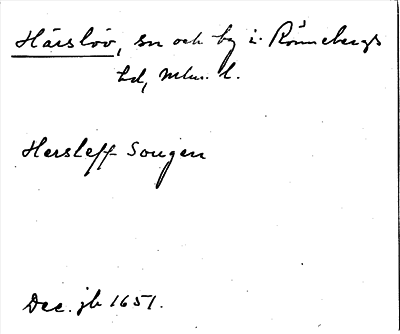 Härslöv, sn och by i Rönnebergs
hd, Mlm. l.
Hersleff Sougen
Dec. jb 1651.